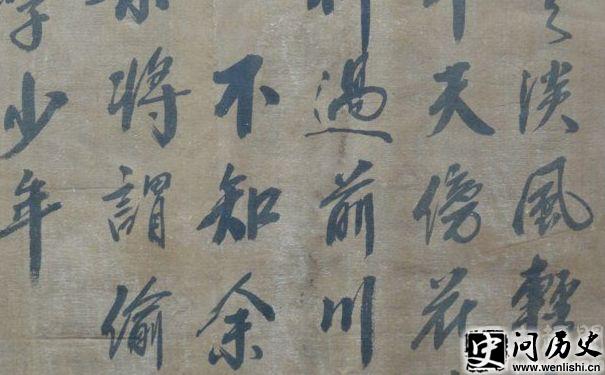 淡風輕
天傍花
過前川
不知余
將謂偷
學少年
史问历史
www.wenlishi.cn